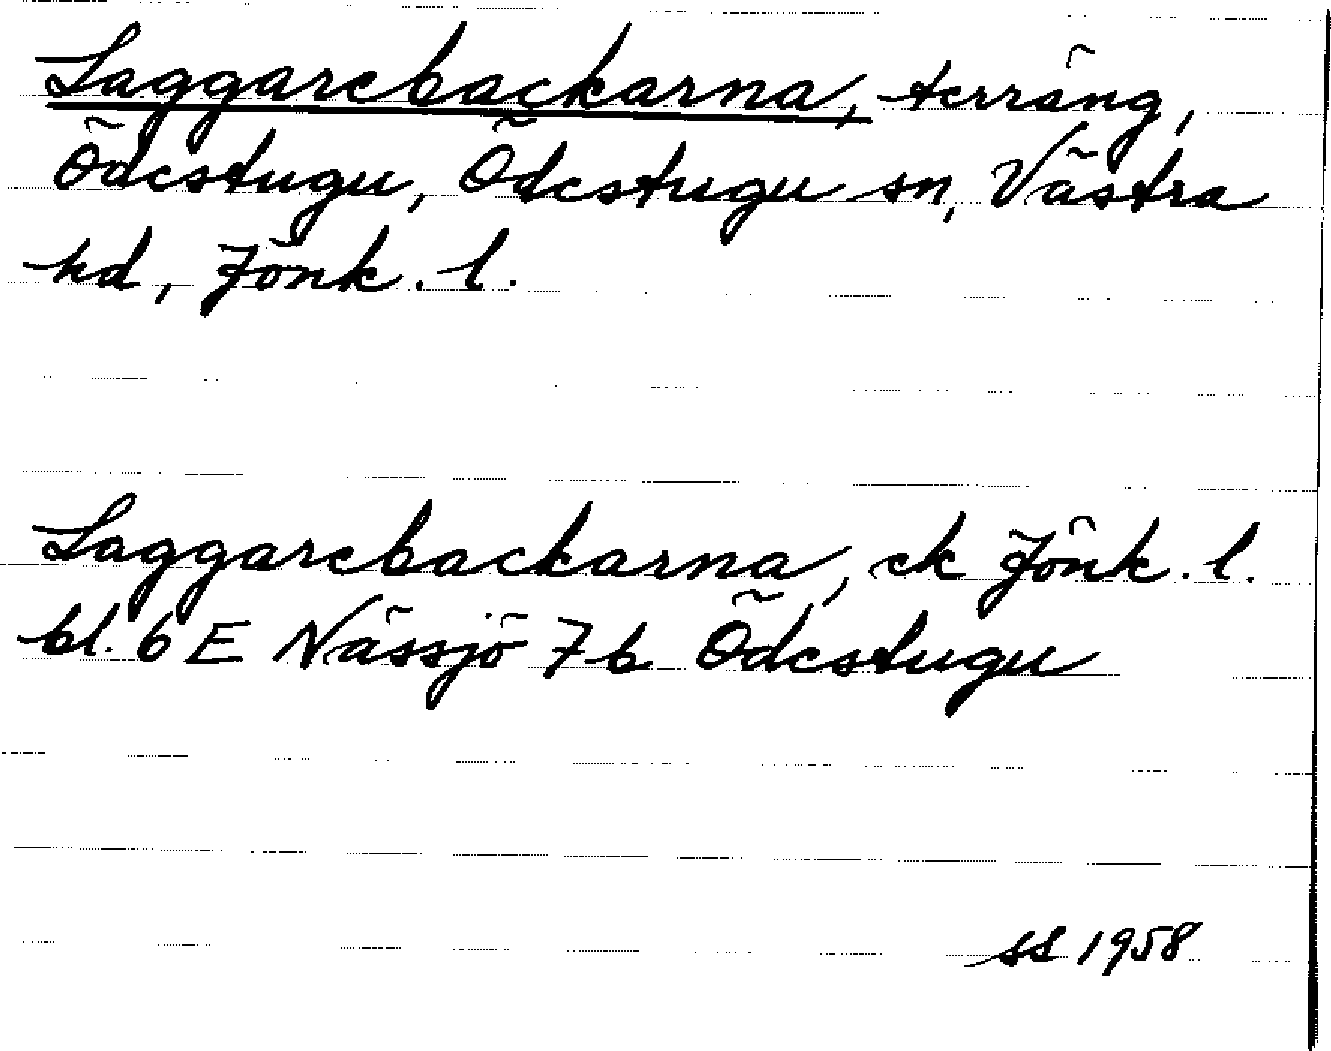 Laggarebackarna, terräng,
Ödestugu, Ödestugu sn, Västra
hd, Jönk. l.
Laggarebackarna, ek Jönk. l.
bl. 6 E Nässjö 7 b Ödestugu
SS 1958